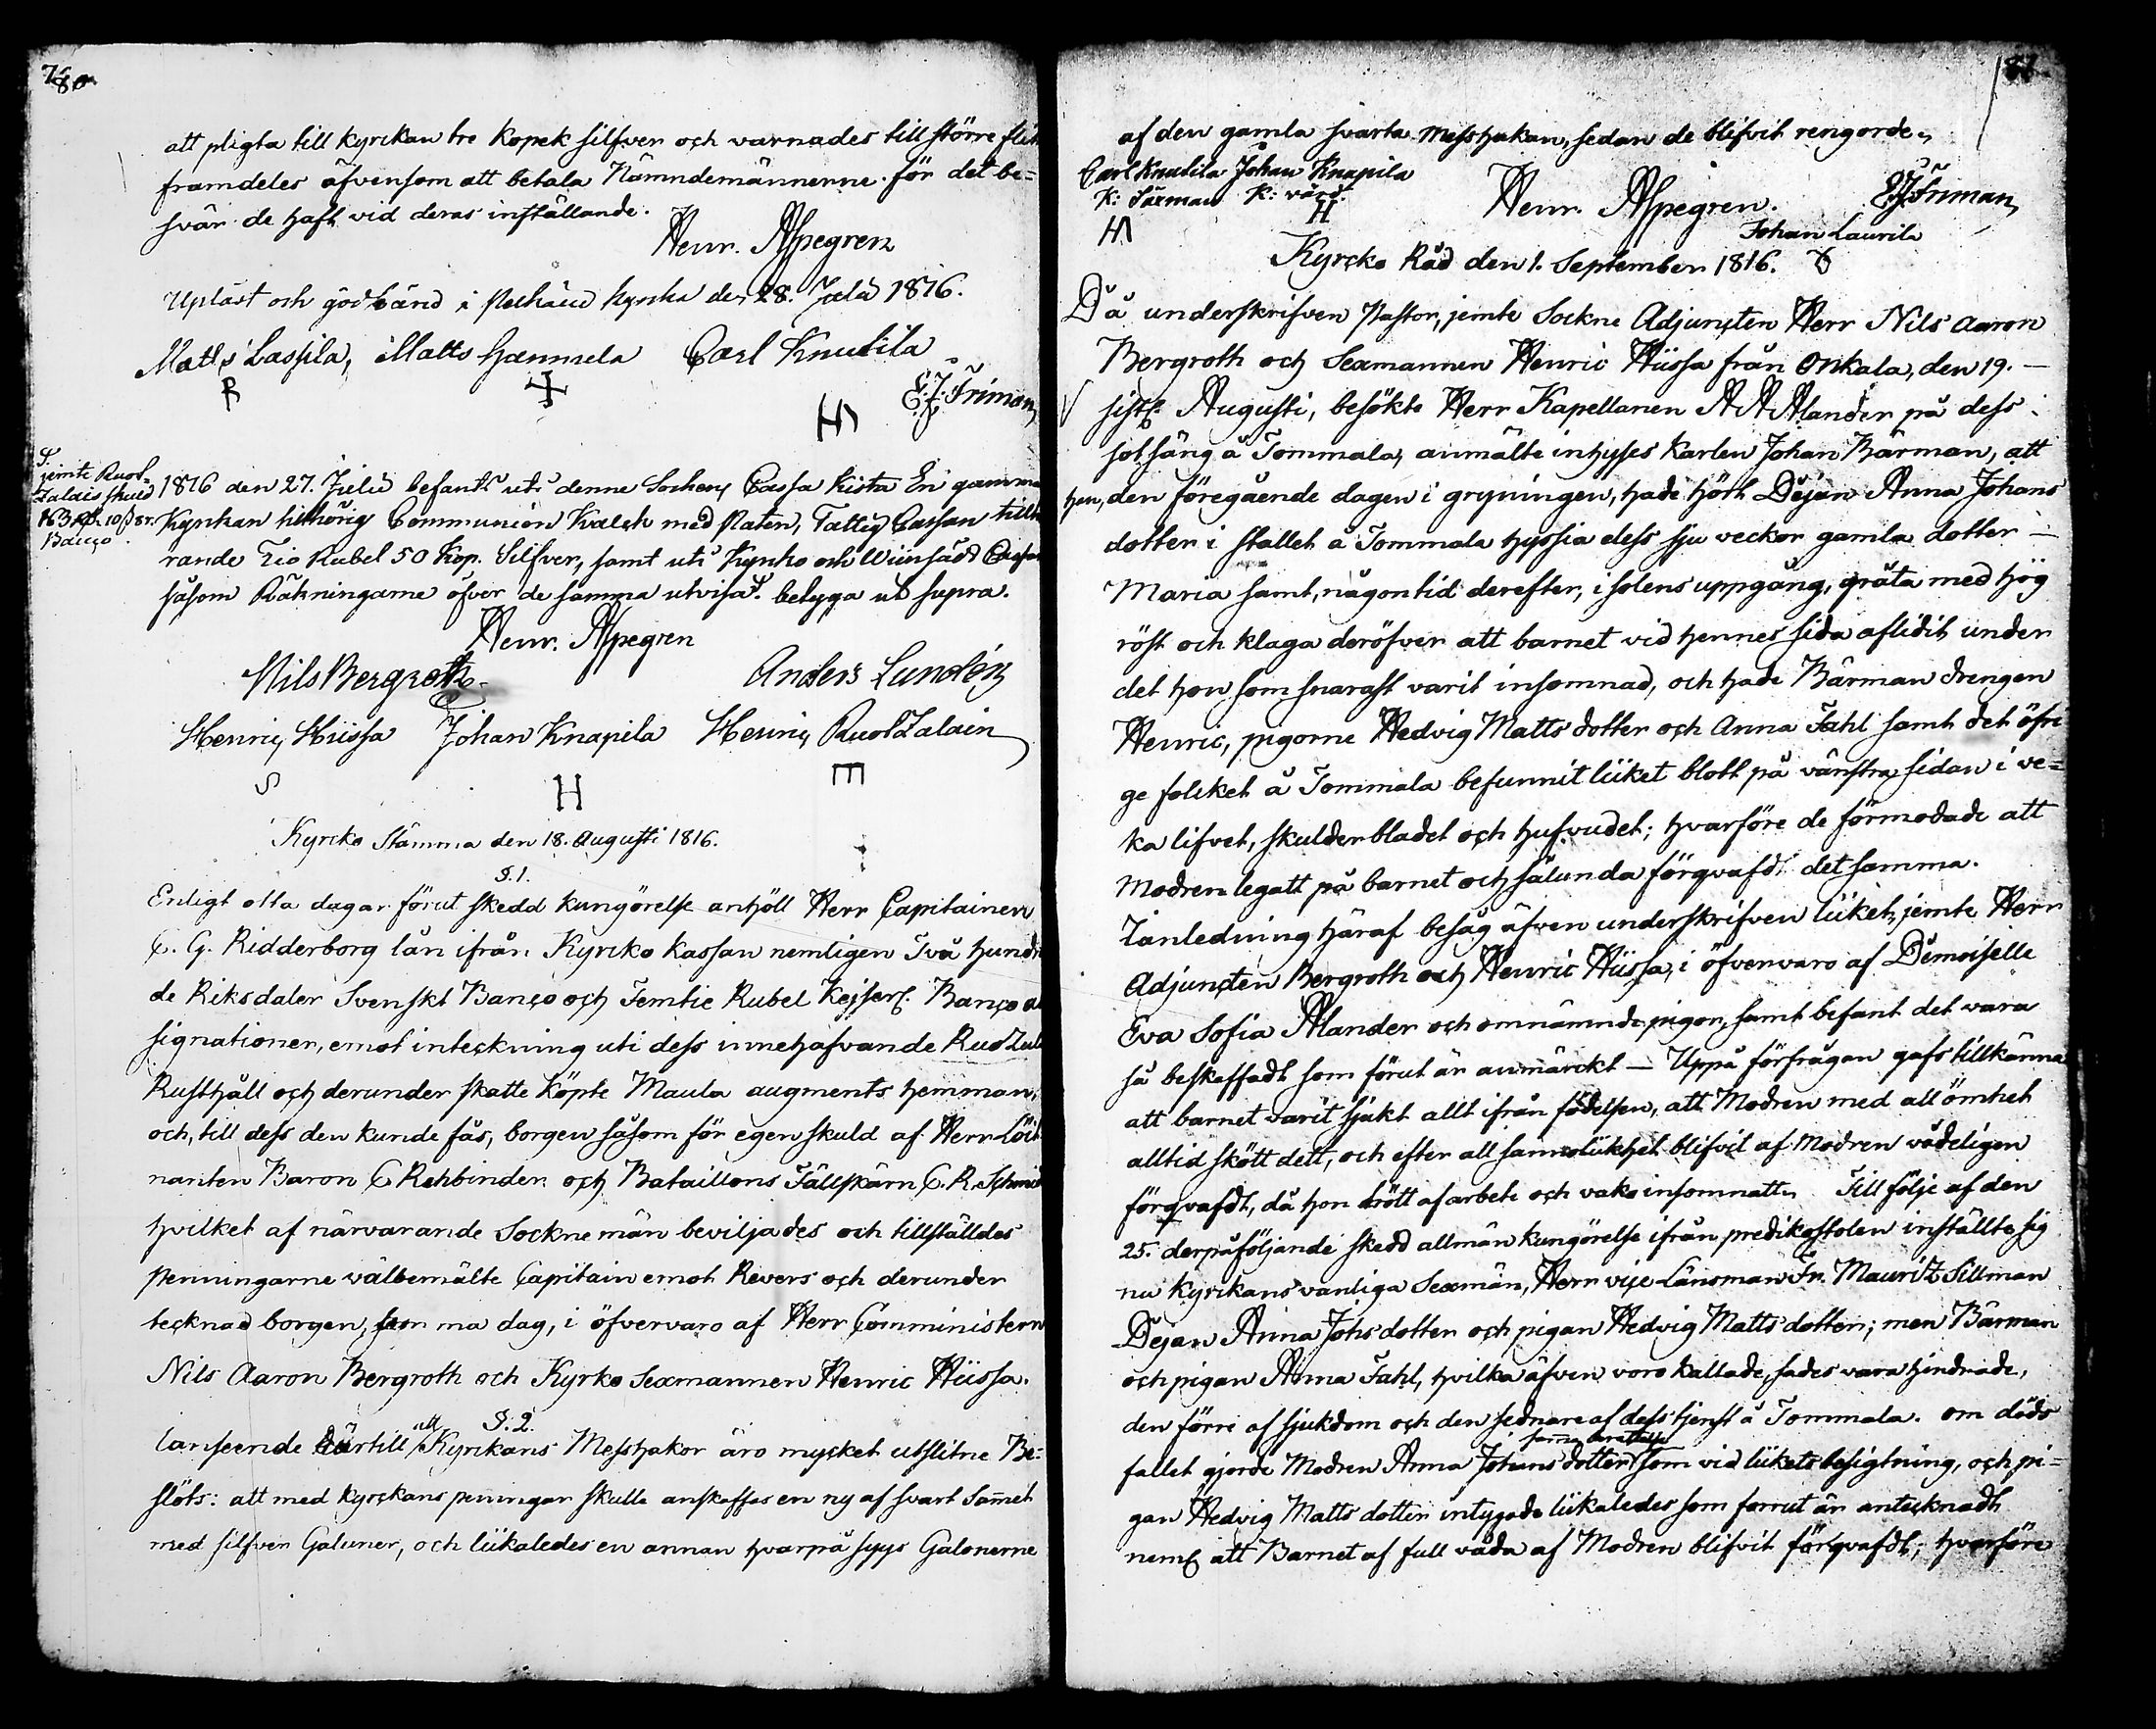 80
att pligta till kyrckan tre Kopek silfver och varnades till större flit
framdeles äfvensom att betala Nämndemännerne för det be=
svär de haft vid deras inställande.
Henr. Alpegren
Upläst och godkänd i kyrka den 28. Julii 1816.
Matts Lassila, Matts Hannuela Carl Knutila
R H
E. J. Friman
S.
jemte Ruot=
zalais skuld
163 Rd. 10 s 8 r.
Banco.
1816 den 27. Julii befants uti denne Sockens Cassa kista En gammal
Kyrkan tillhörig Communion Kalck med Paten, Fattig Cassan tillhö
rande Tio Rubel 50 Kop. Silfver, samt uti Kyrko och Wiinsädd Cassan
såsom Räkningarne öfver de samma utvisa S. betyga ut supra.
Henr. Alpegren
Nils Bergroth Anders Lundén
Henric Hiissa Johan Knapila Henric Ruotzalain
S H E
Kyrcko Stämma den 18. Augusti 1816.
§. 1.
Enligt otta dagar förut skedd kungörelse anhöll Herr Capitainen
C. G. Ridderborg lån ifrån Kyrcko kassan nemligen Två hundra
de Riksdaler Svenskt Banco och Femtie Rubel Kejserl. Banco as
signationer, emot inteckning uti dess innehafvande
Rusthåll och derunder skatte köpte Maula augments hemman,
och, till dess den kunde fås, borgen såsom för egen skuld af Herr Löit
nanten Baron C Rehbinder och Bataillons Fältskärn C. R. Schmidt
hvilket af närvarande Sockne män beviljades och tillställdes
penningarne välbemälte Capitain emot Revers och derunder
tecknad borgen, samma dag, i öfvervaro af Herr Comministern
Nils Aaron Bergroth och Kyrko Sexmannen Henric Hiissa.
§. 2.
I anseende härtill att Kyrckans Messhakor äro mycket utslitne Be=
slöts: att med kyrckans penningar skulle anskaffas en ny af svart Samet
med silfver Galuner, och liikaledes en annan hvarpå sys Galonerne
81
af den gamla svarta messhakan, sedan de blifvit rengorde.
Carl Knutila Johan Knapila
K: Säxman K: värd.
H
Henr. Alpegren. E J. Friman,
Johan Laurila
Kyrcko Råd den 1. September 1816.
Då underskrifven Pastor, jemte Sockne Adjuncten Herr Nils Aaron
Bergroth och Sexmannen Henric Hiissa från Onkala, den 19. —
sistl. Augusti, besökte Herr Kapellanen A A Alander på dess
sotsäng å Tommala, anmälte inhyses karlen Johan Bärman, att
han, den föregående dagen i gryningen, hade hört Dejan Anna Johans
dotter i stallet å Tommala hyssia dess sju veckor gamla dotter —
Maria samt, någon tid derefter, i solens uppgång, gråta med hög
röst och klaga deröfver att barnet vid hennes sida aflidit under
det hon som snarast varit insomnad, och hade Bärman drengen
Henric, pigorne Hedvig Matts dotter och Anna Fahl samt det öfri
ge folcket å Tommala befunnit liiket blott på vänstra sidan i ve=
ka lifvet, skulderbladet och hufvudet; hvarföre de förmodade att
Modren legatt på barnet och sålunda förqvafdt det samma.
I anledning häraf besåg äfven underskrifven liiket, jemte Herr
Adjuncten Bergroth och Henric Hiissa, i öfvervaro af Demoiselle
Eva Sofia Alander och omnämnde pigor, samt befant det vara
så beskaffadt som förut är anmärckt — Uppå förfrågan gafs tillkänna
att barnet varit sjukt allt ifrån födelsen, att Modren med all ömhet
alltid skött dett, och efter all sannoliikhet blifvit af Modren vådeligen
förqvafdt, då hon trött af arbete och vaka insomnatt. Till följe af den
25. derpåföljande skedd allmän kungörelse ifrån predikostolen inställte sig
nu Kyrckans vanliga Sexmän, Herr vice Länsman Fr. Mauritz Sillman
Dejan Anna Johs dotter och pigan Hedvig Matts dotter; men Bärman
och pigan Anna Fahl, hvilka äfven voro kallade, sades vara hindrade,
den förre af sjukdom och den sednare af dess tjenst å Tommala. Om döds
fallet gjorde Modren Anna Johans dotter samma berättelse som vid liikets besigtning, och pi=
gan Hedvig Matts dotter intygade liikaledes som förrut är antecknadt
neml att Barnet af full våda af Modren blifvit förqvafdt; hvarföre